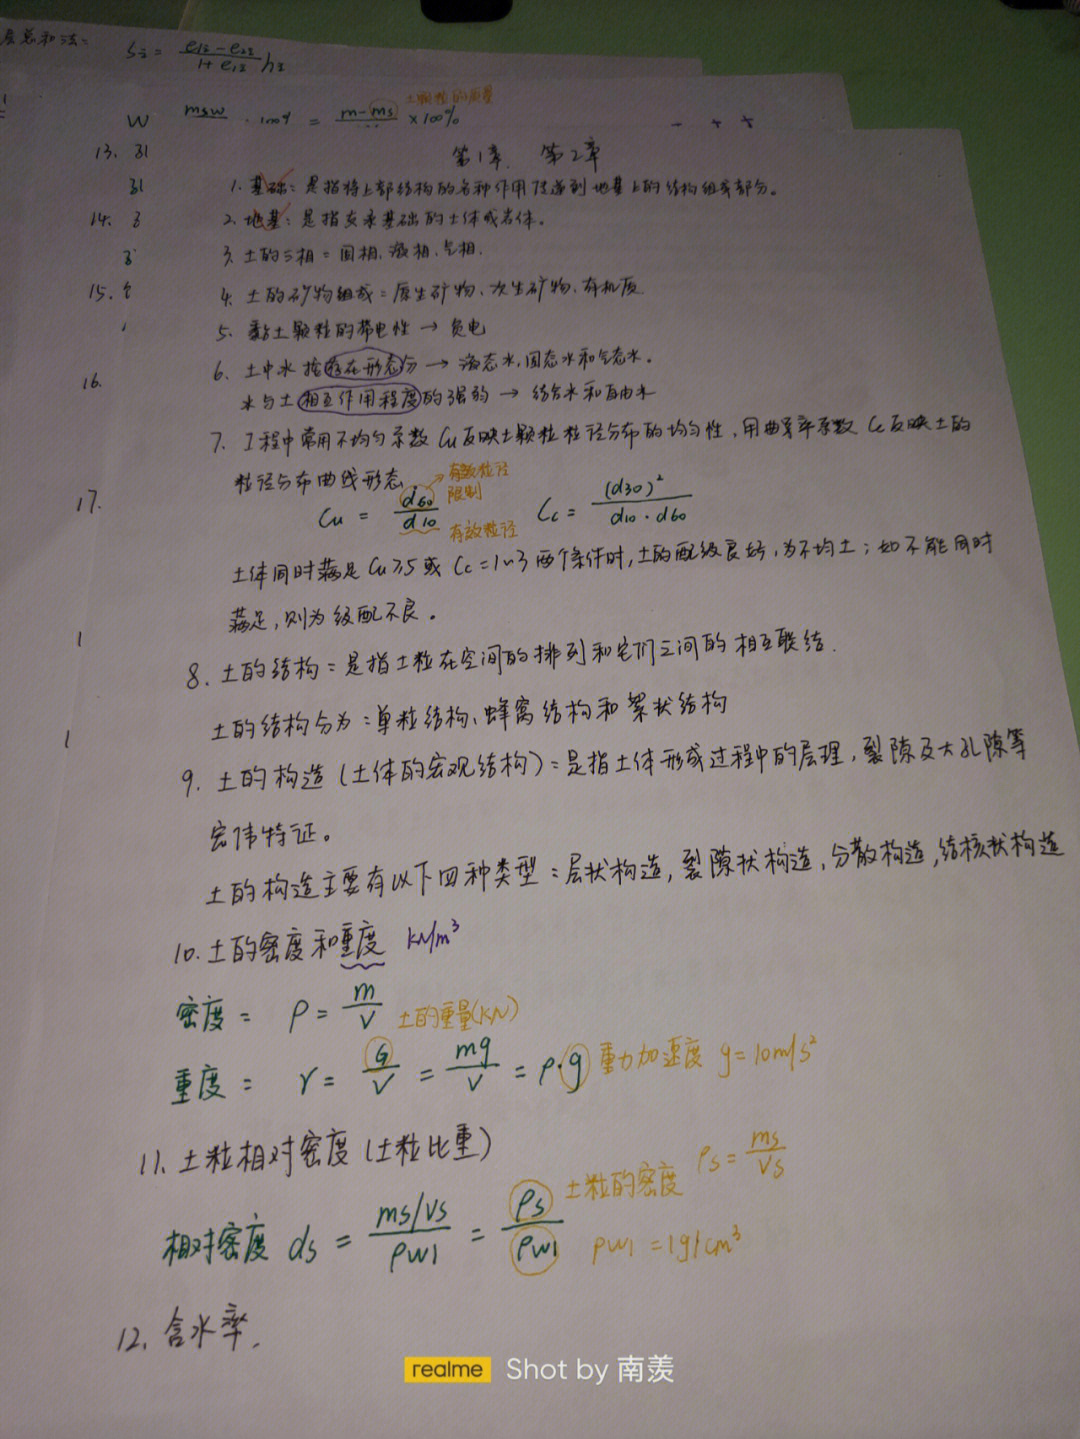 S₂ = (e₁₂ - e₂₂) / (1 + e₁₂) h₂
土颗粒的质量
W msw · 100% = m - ms × 100%
第1章. 第2章
1. 基础: 是指将上部结构的各种作用传递到地基上的结构组成部分。
2. 地基: 是指支承基础的土体或岩体。
3. 土的三相: 固相、液相、气相.
4. 土的矿物组成: 原生矿物、次生矿物、有机质
5. 黏土颗粒的带电性 → 负电
6. 土中水按存在形态分 → 液态水、固态水和气态水。
水与土相互作用程度的强弱 → 结合水和自由水
7. 工程中常用不均匀系数 Cu 反映土颗粒粒径分布的均匀性, 用曲率系数 Cc 反映土的
粒径分布曲线形态
有效粒径
限制
Cu = d60 / d10 Cc = (d30)² / d10 · d60
有效粒径
土体同时满足 Cu≥5 或 Cc = 1~3 两个条件时, 土的配级良好, 为不均土; 如不能同时
满足, 则为级配不良。
8. 土的结构: 是指土粒在空间的排列和它们之间的相互联结.
土的结构分为: 单粒结构、蜂窝结构和絮状结构
9. 土的构造 (土体的宏观结构): 是指土体形成过程中的层理, 裂隙及大孔隙等
宏伟特证。
土的构造主要有以下四种类型: 层状构造, 裂隙状构造, 分散构造, 结核状构造
10. 土的密度和重度 kN/m³
密度: ρ = m / V
土的重量(KN)
重度: γ = G / V = mg / V = ρ·g 重力加速度 g = 10m/s²
11. 土粒相对密度 (土粒比重)
土粒的密度 ρs = ms / Vs
相对密度 ds = ms/Vs / ρw1 = ρs / ρw1 ρw1 = 1g/cm³
12. 含水率.
13.
14.
15.
16.
17.
realme Shot by 南羡